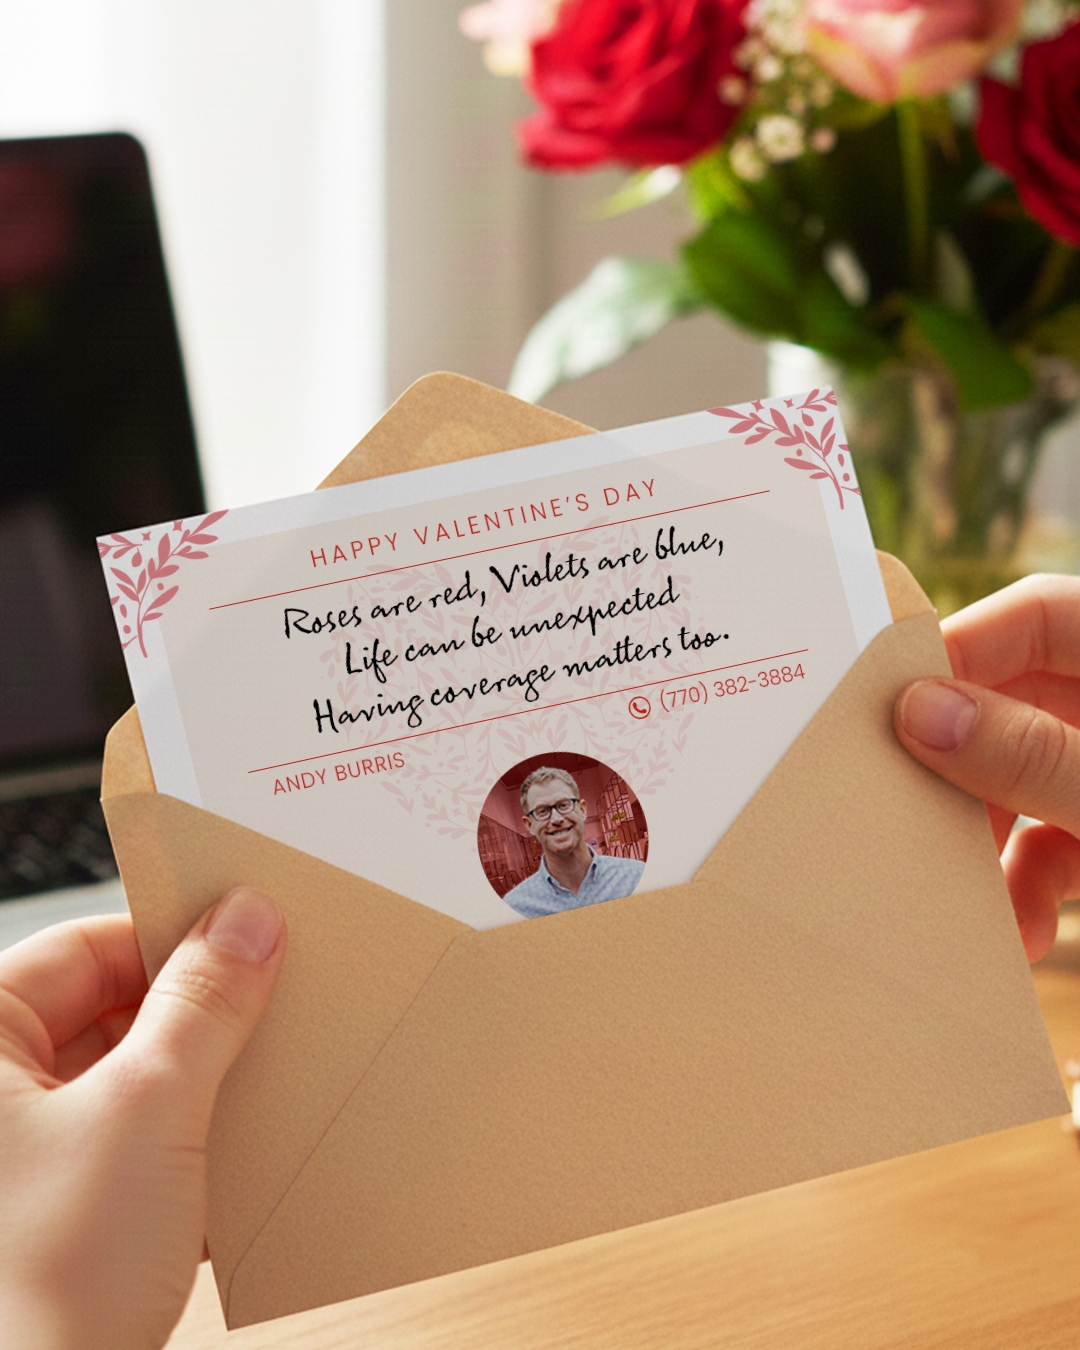 HAPPY VALENTINE'S DAY
Roses are red, Violets are blue,
Life can be unexpected
Having coverage matters too.
ANDY BURRIS
(770) 382-3884